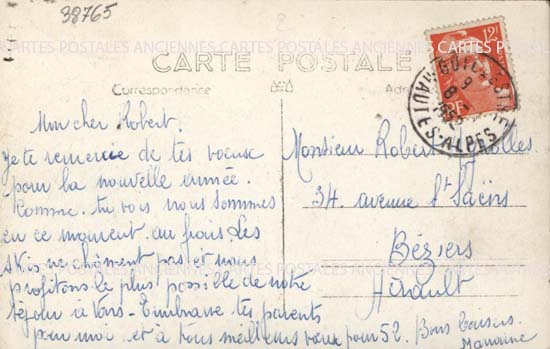 38765
CARTES POSTALES ANCIENNES
CARTE POSTALE
Correspondance
12F
RF
HAUTES-ALPES
Mon cher Robert.
Je te remercie de tes voeux
pour la nouvelle année.
Comme tu vois nous sommes
en ce moment au frais. Les
skis ne chôment pas et nous
profitons le plus possible de notre
séjour à Vars. Embrasse tes parents
pour moi et à tous meilleurs voeux pour 52. Bons baisers.
Monsieur Robert
34. avenue St Saëns
Béziers
Hérault